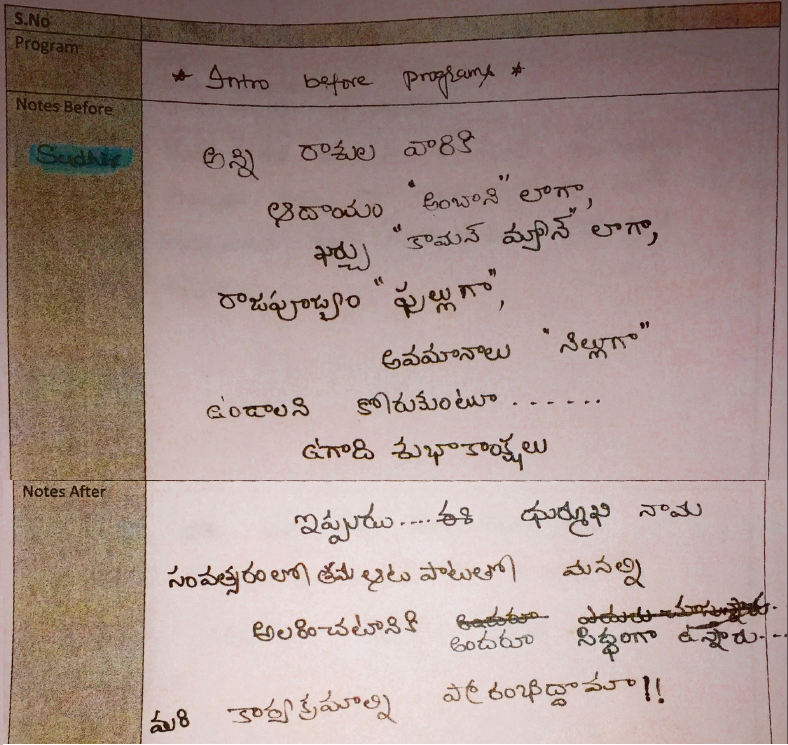 S.No
Program
* Intro before programs *
Notes Before
Sudhir
అన్ని రాశుల వారికి
ఆదాయం "అంబానీ" లాగా,
ఖర్చు "కామన్ మ్యాన్" లాగా,
రాజపూజ్యం "ఫుల్లుగా",
అవమానాలు "నిల్లుగా"
ఉండాలని కోరుకుంటూ ......
ఉగాది శుభాకాంక్షలు
Notes After
ఇప్పుడు .... ఈ దుర్ముఖి నామ
సంవత్సరంలో తమ ఆట పాటలతో మనల్ని
అలరించటానికి
అందరూ సిద్ధంగా ఉన్నారు...
మరి కార్యక్రమాల్ని ప్రారంభిద్దామా!!